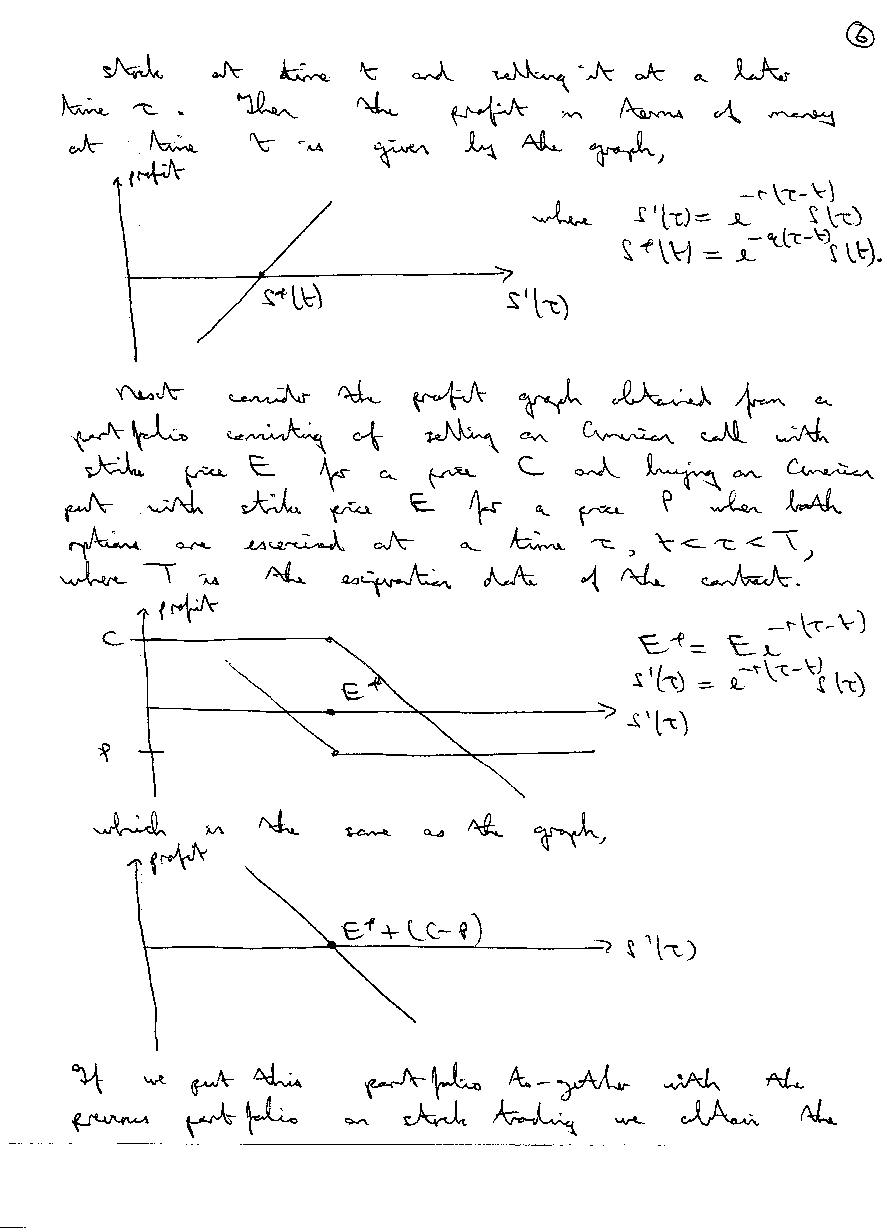 6
stock at time t and selling it at a later
time τ. Then the profit in terms of money
at time t is given by the graph,
profit
where S'(τ) = e^{-r(τ-t)} S(τ)
S*(t) = e^{-q(τ-t)} S(t).
S*(t) S'(τ)
Next consider the profit graph obtained from a
portfolio consisting of selling an American call with
strike price E for a price C and buying an American
put with strike price E for a price P when both
options are exercised at a time τ, t < τ < T,
where T is the expiration date of the contract.
profit
C
E* = E e^{-r(τ-t)}
S'(τ) = e^{-r(τ-t)} S(τ)
E*
S'(τ)
P
which is the same as the graph,
profit
E* + (C-P)
S'(τ)
If we put this portfolio to-gether with the
previous portfolio on stock trading we obtain the